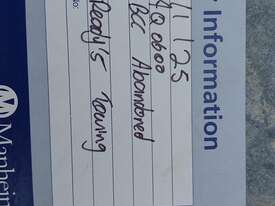 Information
1/25
Q0600
Abandoned
Ready's Towing
No:
Manheim